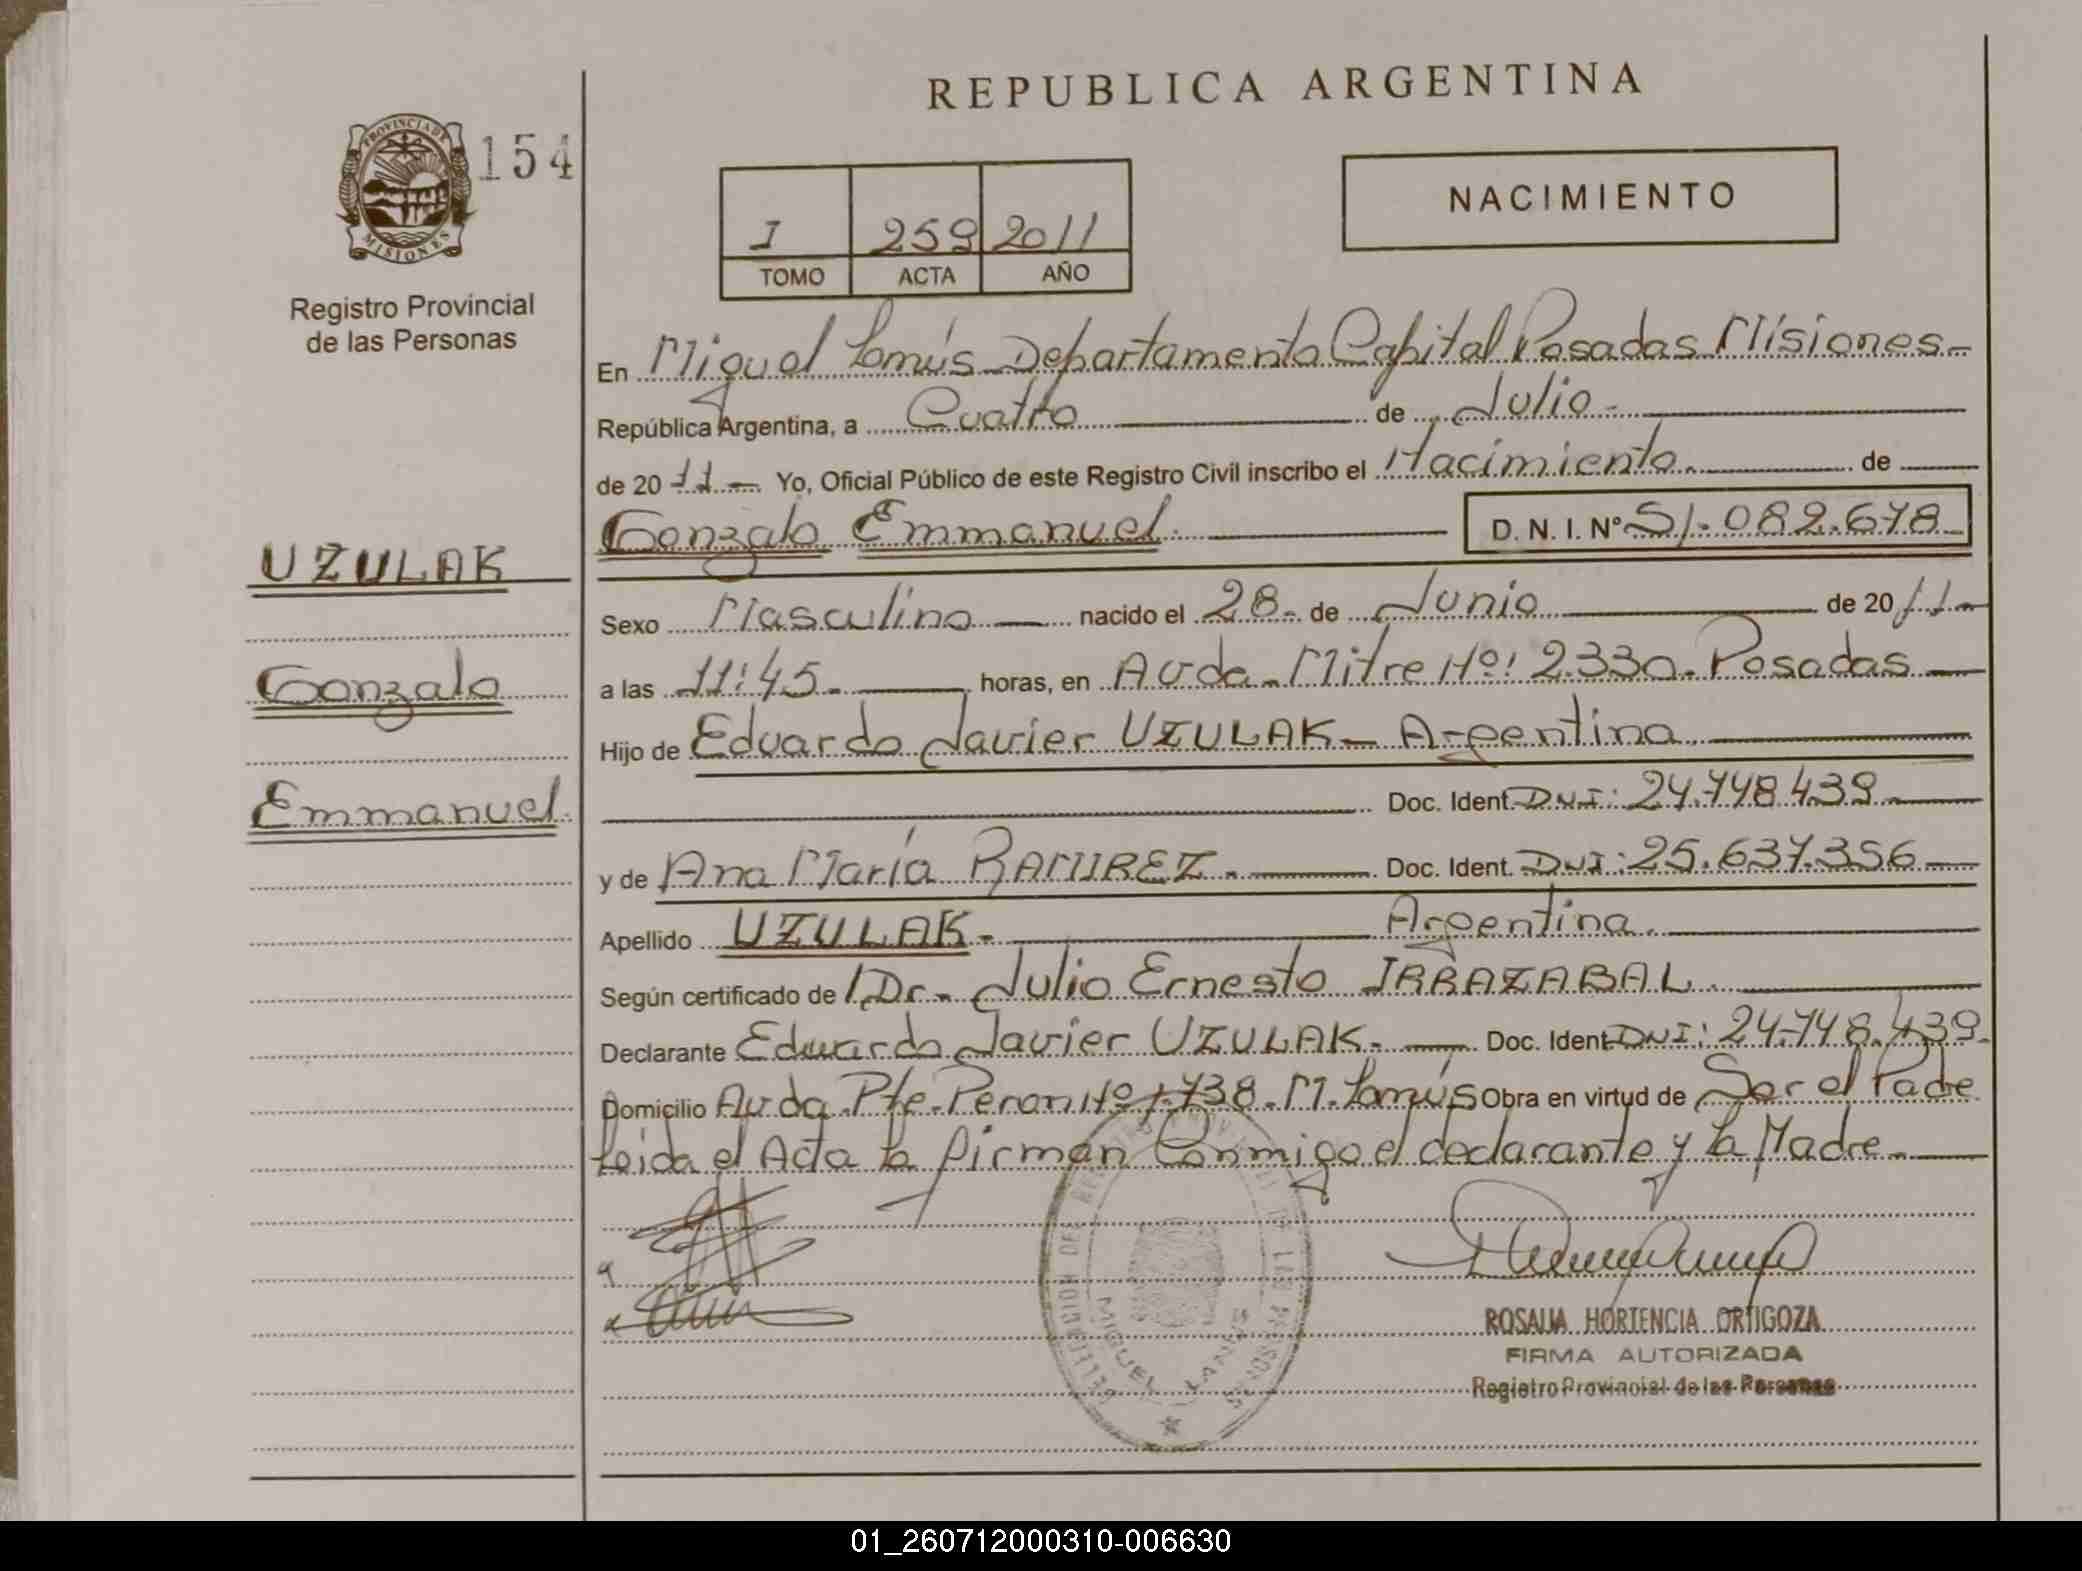 REPUBLICA ARGENTINA
PROVINCIA DE
MISIONES
154
Registro Provincial
de las Personas
I 259 2011
TOMO ACTA AÑO
NACIMIENTO
En Miguel Lanús Departamento Capital Posadas Misiones.
República Argentina, a Cuatro de Julio.
de 2011 Yo, Oficial Público de este Registro Civil inscribo el Nacimiento. de
Gonzalo Emmanuel. D. N. I. Nº 51.082.678
UZULAK
Gonzalo
Emmanuel.
Sexo Masculino nacido el 28 de Junio de 2011
a las 11:45 horas, en Avda. Mitre Nº: 2.330. Posadas
Hijo de Eduardo Javier UZULAK Argentina
Doc. Ident. DNI: 24.748.439
y de Ana María RAMIREZ. Doc. Ident. DNI: 25.637.356
Apellido UZULAK. Argentina.
Según certificado de Dr. Julio Ernesto IRRAZABAL.
Declarante Eduardo Javier UZULAK. Doc. Ident DNI: 24.748.439.
Domicilio Avda. Pte. Peron Nº 1.738. M. Lanús Obra en virtud de Ser el Padre
Leida el Acta la firman Conmigo el declarante y la Madre.
DELEGACION DEL REGISTRO PROVINCIAL DE LAS PERSONAS
MIGUEL LANUS
ROSALIA HORTENCIA ORTIGOZA
FIRMA AUTORIZADA
Registro Provincial de las Personas
01_260712000310-006630